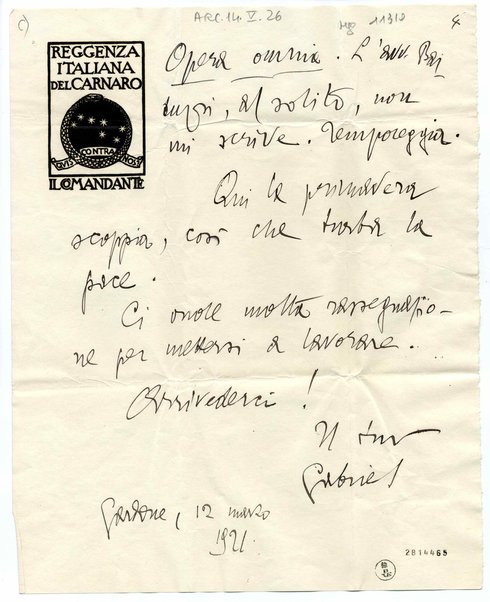 c)
ARC. 14. V. 26
11318
4
REGGENZA
ITALIANA
DEL CARNARO
QUIS CONTRA NOS?
IL COMANDANTE
Opera omnia. L'avv. Bar
duzzi, al solito, non
mi scrive. Temporeggia.
Qui la primavera
scoppia, così che turba la
pace.
Ci vuole molta rassegnazio-
ne per mettersi a lavorare.
Arrivederci!
Il tuo
Gabriel
Gardone, 12 marzo
1921.
2814465